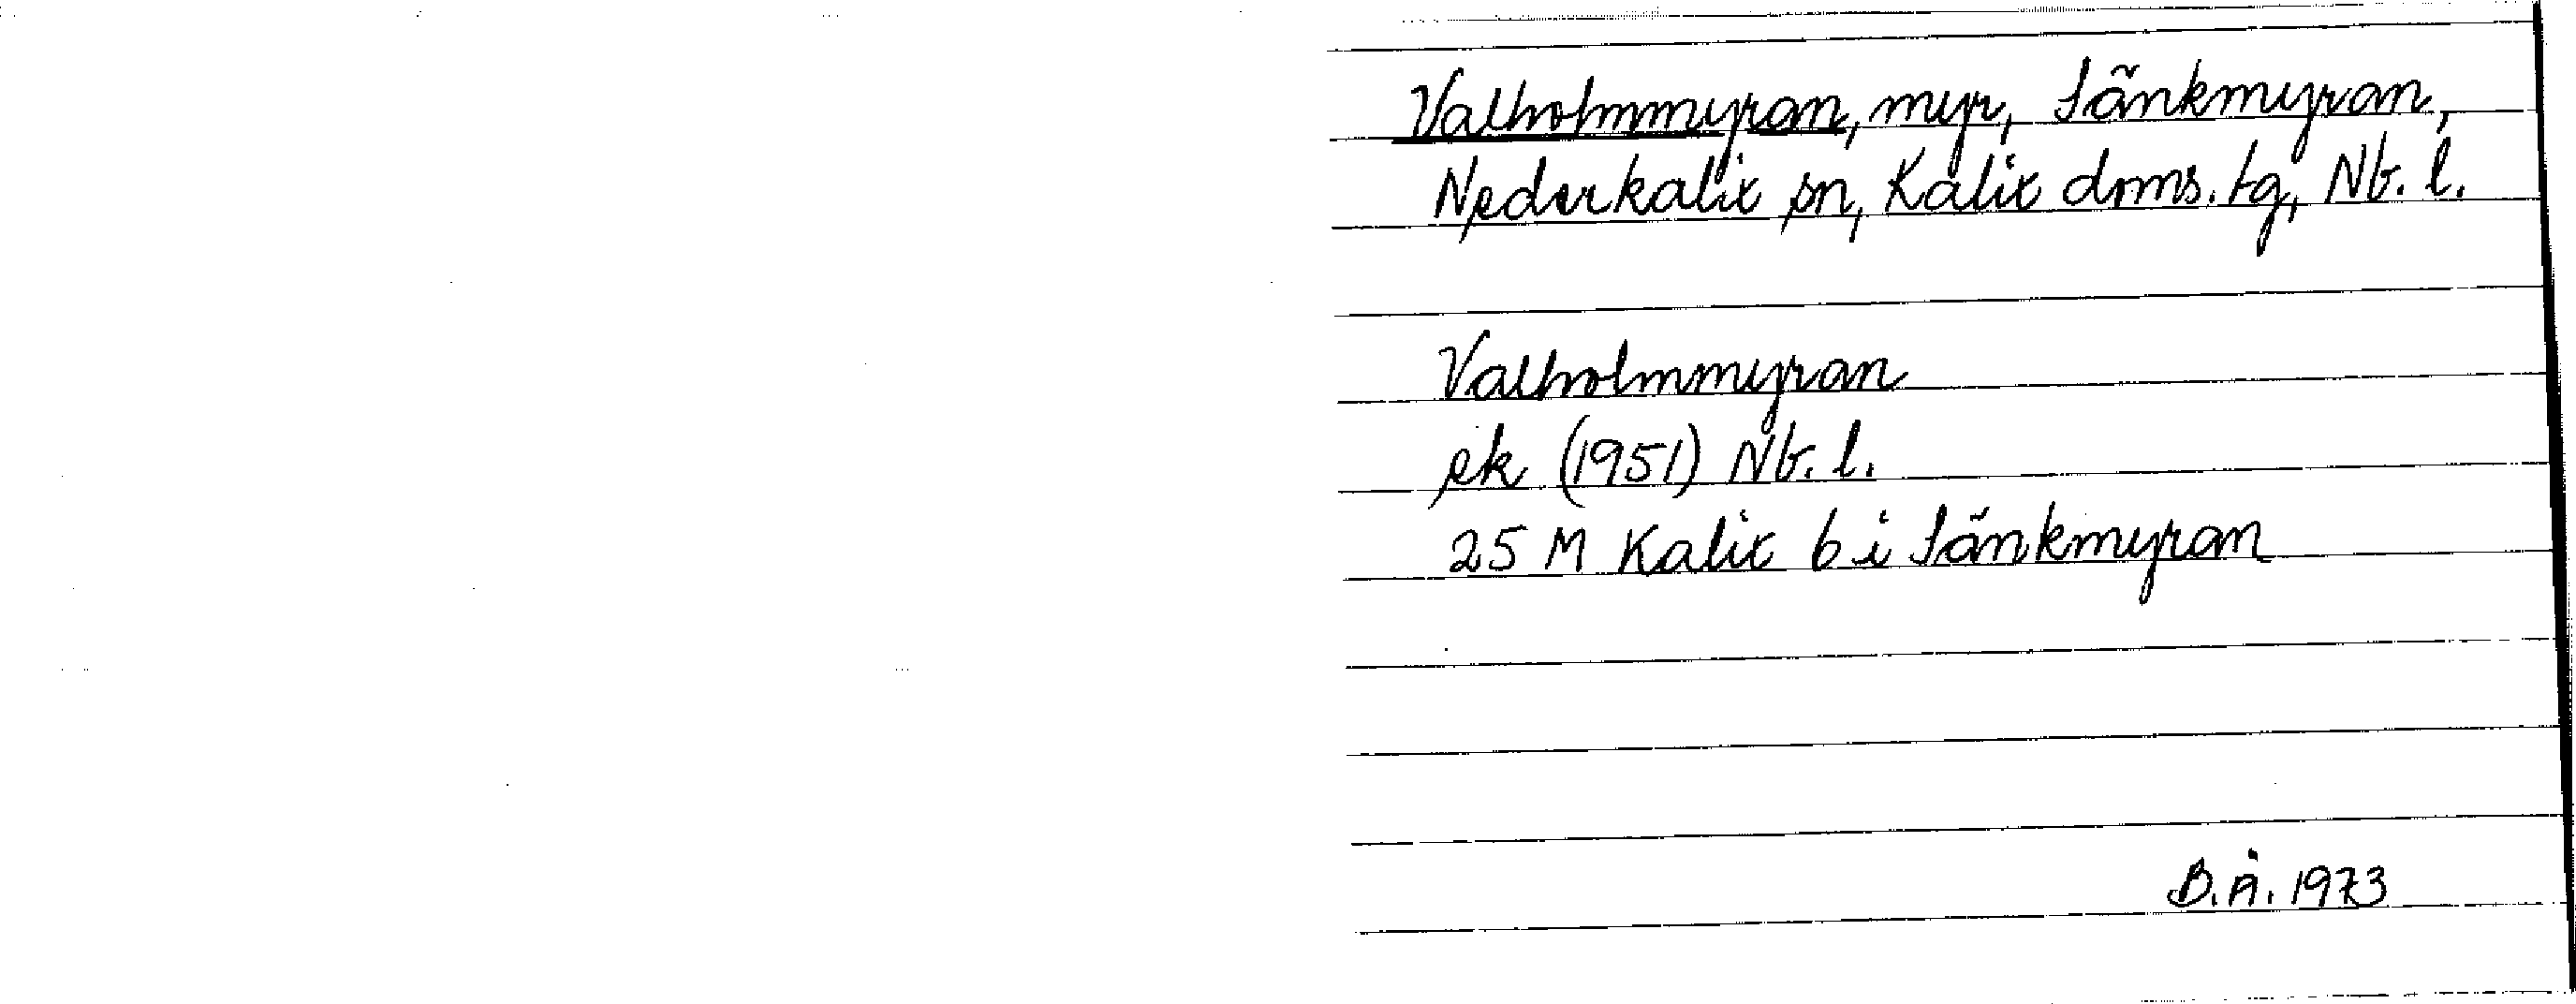 Valholmmyran, myr, Sänkmyran,
Nederkalix sn, Kalix dms. tg, Nb. l.
Valholmmyran
ek (1951) Nb. l.
25 M Kalix 6 i Sänkmyran
B.Å. 1973